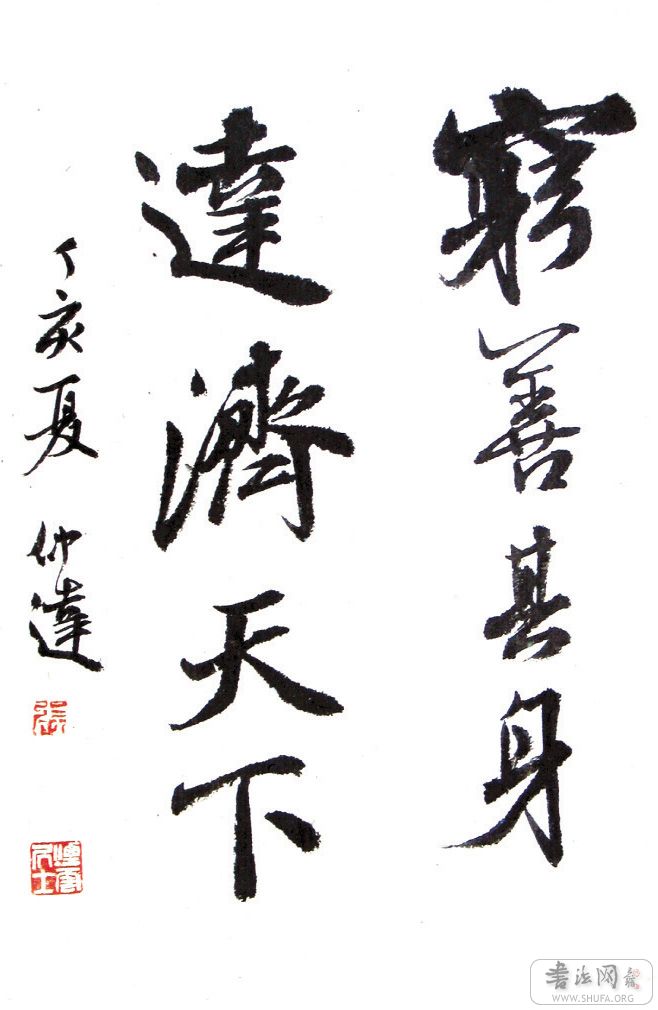 窮善其身
達濟天下
丁亥夏 仲達
張
煙雲居士
書法网
WWW.SHUFA.ORG